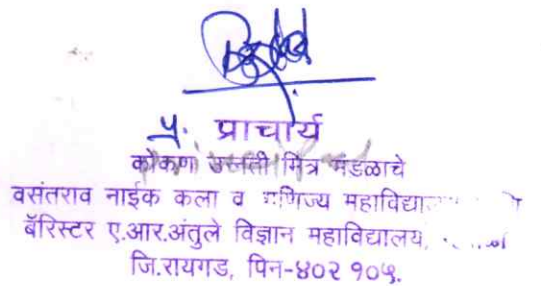 प्र. प्राचार्य
कोकण उन्नती मित्र मंडळाचे
वसंतराव नाईक कला व वाणिज्य महाविद्यालय
बॅरिस्टर ए.आर.अंतुले विज्ञान महाविद्यालय,
जि.रायगड, पिन-४०२ १०५.